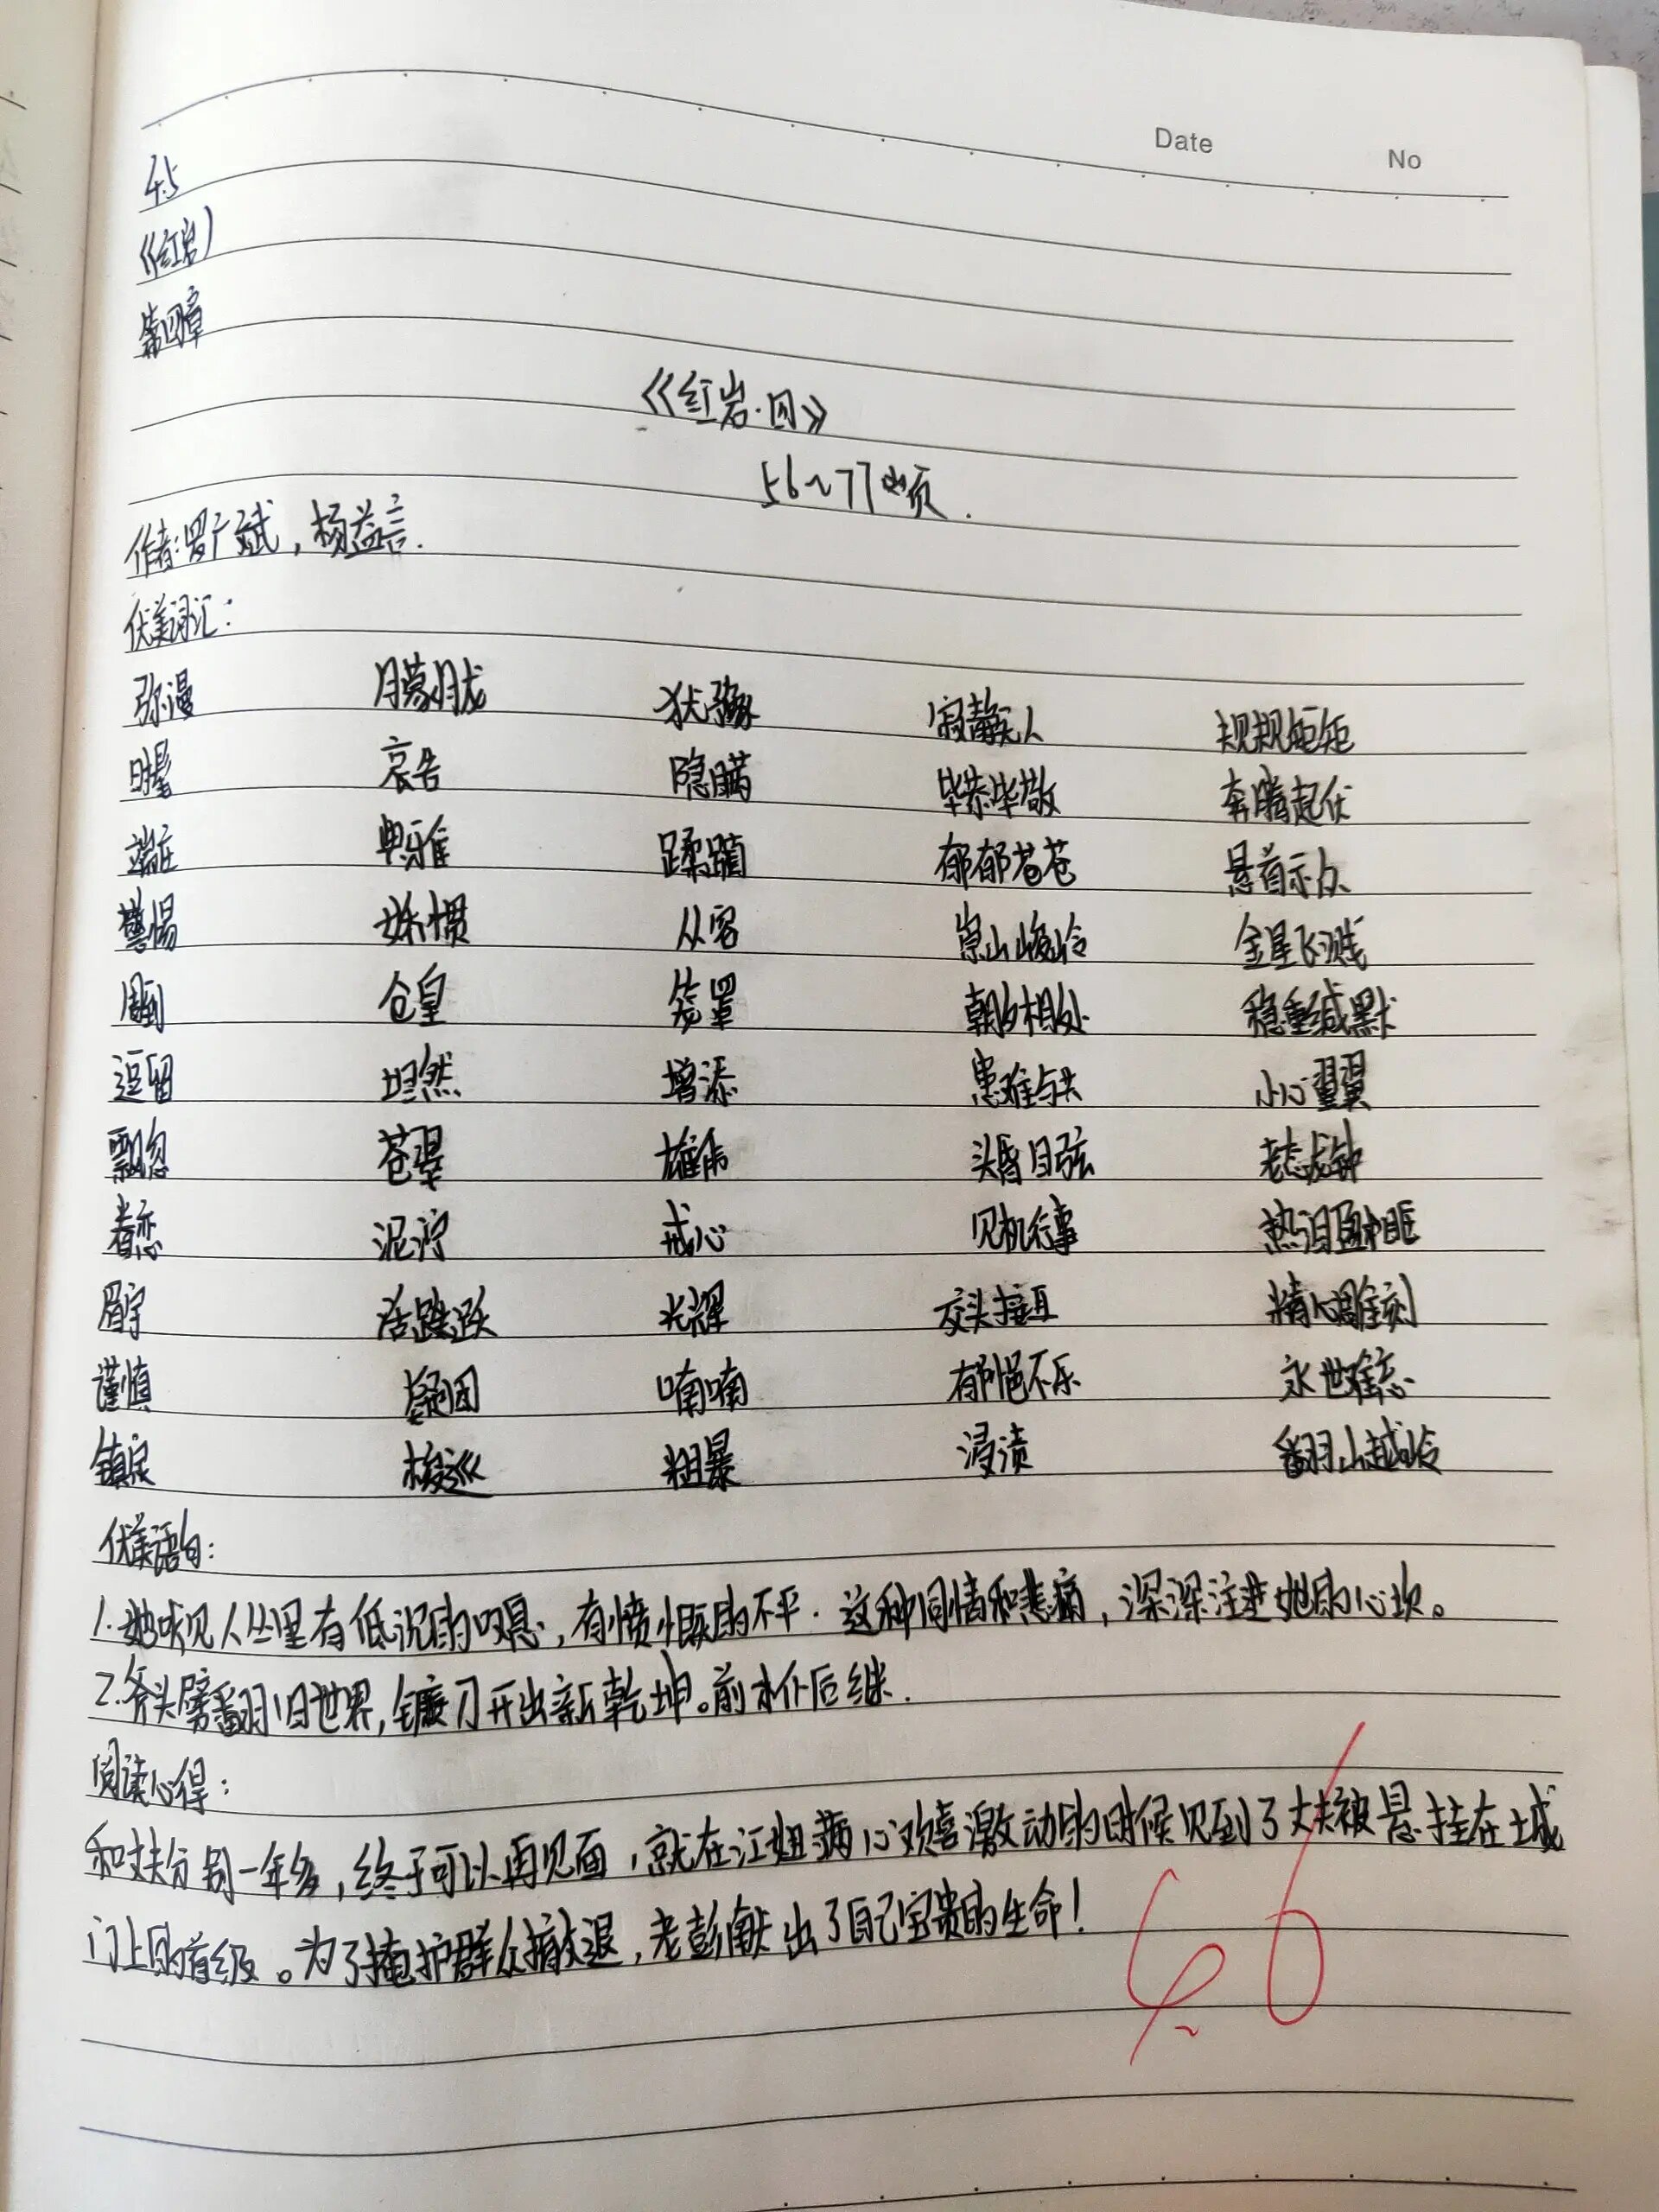 Date No
4.5
《红岩》
第四章
《红岩·四》
56~77页.
作者:罗广斌,杨益言.
优美词汇:
弥漫 朦胧 犹豫 寂静无人 规规矩矩
哀告 隐瞒 毕恭毕敬 奔腾起伏
端庄 典雅 蹂躏 郁郁苍苍 悬首示众
警惕 从容 崇山峻岭 金星飞溅
周到 仓皇 笼罩 朝夕相处 稳重缄默
逗留 坦然 增添 患难与共 小心翼翼
飘忽 苍翠 雄伟 头昏目弦 老态龙钟
眷恋 泥泞 戒心 见机行事 热泪盈眶
眉宇 活跃 光辉 交头接耳 精心雕刻
谨慎 凝固 喃喃 郁悒不乐 永世难忘
镇定 梭巡 粗暴 浸渍 翻山越岭
优美语句:
1.她听见人丛里有低沉的叹息,有愤慨的不平.这种同情和悲痛,深深注进她的心坎。
2.斧头劈翻旧世界,镰刀开出新乾坤。前仆后继.
阅读心得:
和丈夫分别一年多,终于可以再见面,就在江姐满心欢喜激动的时候见到了丈夫被悬挂在城
门上的首级。为了掩护群众撤退,老彭献出了自己宝贵的生命!